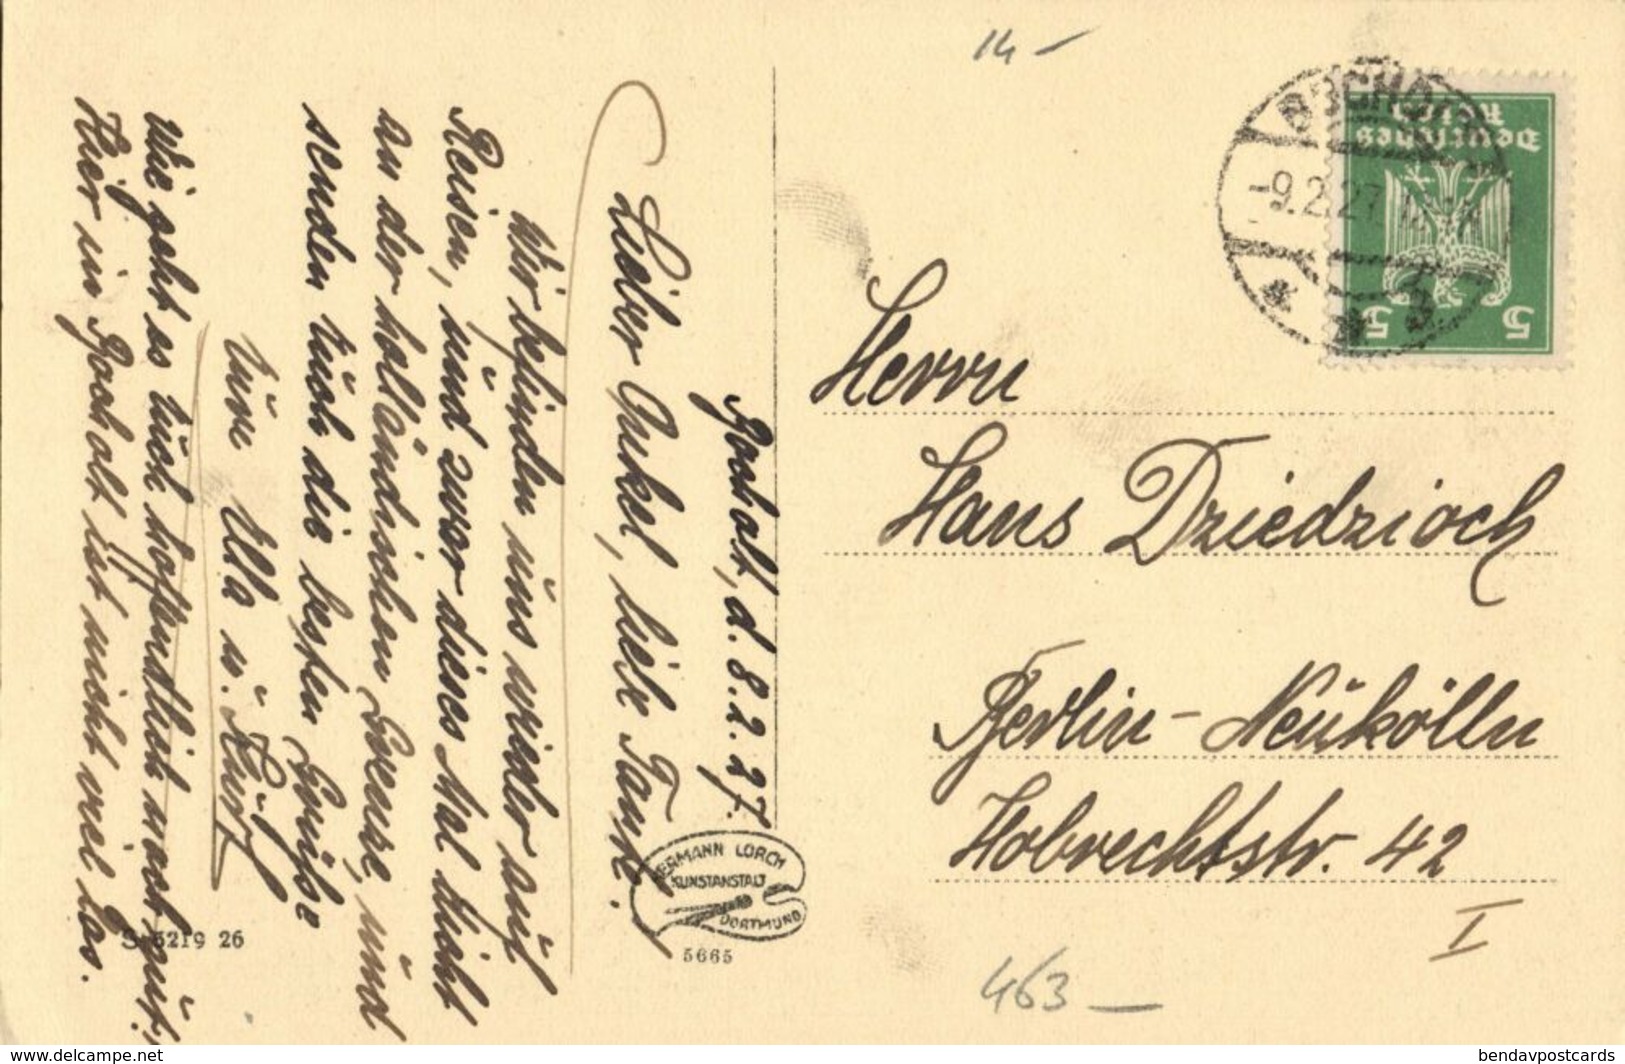 14 –
BOCHOLT
-9.2.27
Deutsches
Reich
5 5
Herrn
Hans Dziedzioch
Berlin-Neukölln
Hobrechtstr. 42
I
463 –
Bocholt, d. 8.2.27.
Lieber Onkel, liebe Tante.
Wir befinden uns wieder auf
Reisen, und zwar dieses Mal dicht
an der holländischen Grenze, und
senden Euch die besten Grüße
Eure Ella u. Kurt
Wie geht es Euch hoffendlich noch gut,
Hier in Bocholt ist nicht viel los.
HERMANN LORCH
KUNSTANSTALT
DORTMUND
5665
S 5219 26
www.delcampe.net
bendavpostcards